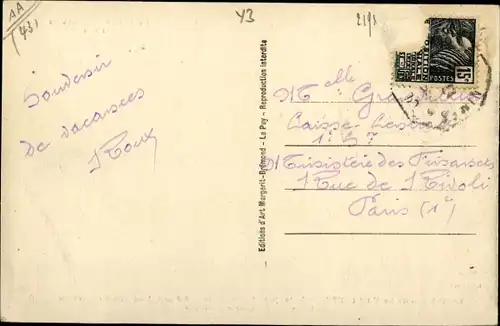 AA
431
Y3
2191
Souvenir
de vacances
Roux
Editions d'Art Margerit-Brémond - Le Puy - Reproduction interdite
POSTES
15c
Melle
Caisse Centrale
Ministère des Finances
Rue de Rivoli
Paris (1er)